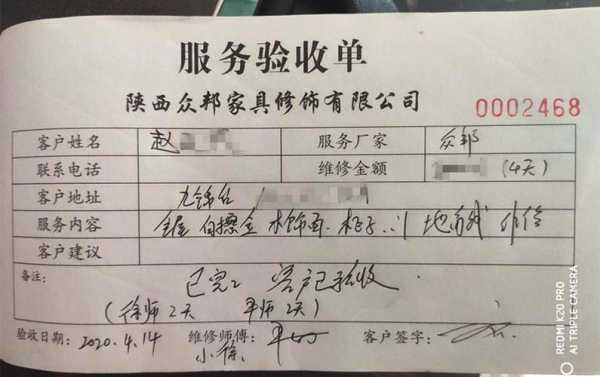 服务验收单
陕西众邦家具修饰有限公司 0002468
客户姓名 赵 服务厂家 众邦
联系电话 维修金额 (4天)
客户地址 九锦台
服务内容 木饰面
客户建议
备注: 已完 客户已验收
(徐师2天 平师2天)
验收日期: 2020.4.14 维修师傅: 小徐 客户签字:
REDMI K20 PRO
AI TRIPLE CAMERA